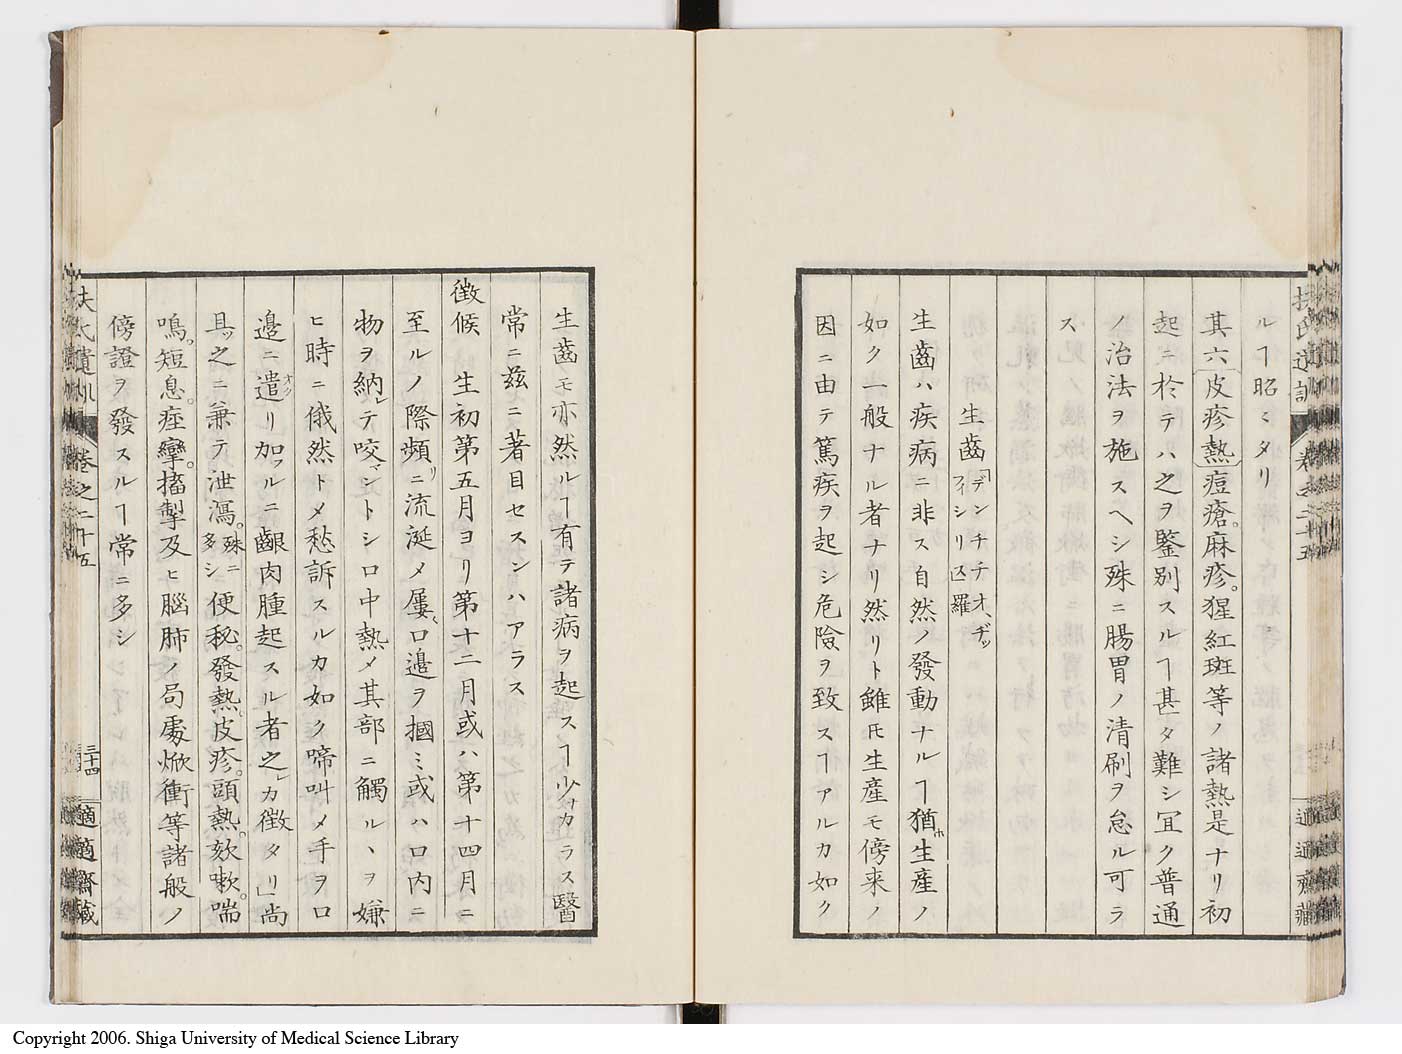 ルヿ昭〻タリ
其六皮疹熱痘瘡。麻疹。猩紅斑等ノ諸熱是ナリ初
起ニ於テハ之ヲ鑒別スルヿ甚タ難シ冝ク普通
ノ治法ヲ施スヘシ殊ニ腸胃ノ清刷ヲ怠ル可ラ
ス
生齒「デンチチオ、ヂッ
フィシリス」羅
生齒ハ疾病ニ非ス自然ノ發動ナルヿ猶ホ生産ノ
如ク一般ナル者ナリ然リト雖𪜈生産モ傍来ノ
因ニ由テ篤疾ヲ起シ危險ヲ致スヿアルカ如ク
生齒モ亦然ルヿ有テ諸病ヲ起スヿ少ナカラス醫
常ニ兹ニ著目セスンハアラス
徴候 生初第五月ヨリ第十二月或ハ第十四月ニ
至ルノ際頻リニ流涎メ屢〻口邉ヲ摑ミ或ハ口内ニ
物ヲ納レテ咬マントシ口中熱メ其部ニ觸ル丶ヲ嫌
ヒ時ニ俄然トメ愁訴スルカ如ク啼叫メ手ヲ口
邉ニ遣オクリ加フルニ齦肉腫起スル者之レカ徴タリ」尚
且ツ之ニ兼テ泄瀉。殊ニ多シ便秘。發熱。皮疹。頭熱。欬嗽。喘
鳴。短息。痙攣。搐掣及ヒ腦肺ノ局處焮衝等諸般ノ
傍證ヲ發スルヿ常ニ多シ
扶氏遺訓 卷之二十五
三十四 適適齋藏
Copyright 2006. Shiga University of Medical Science Library